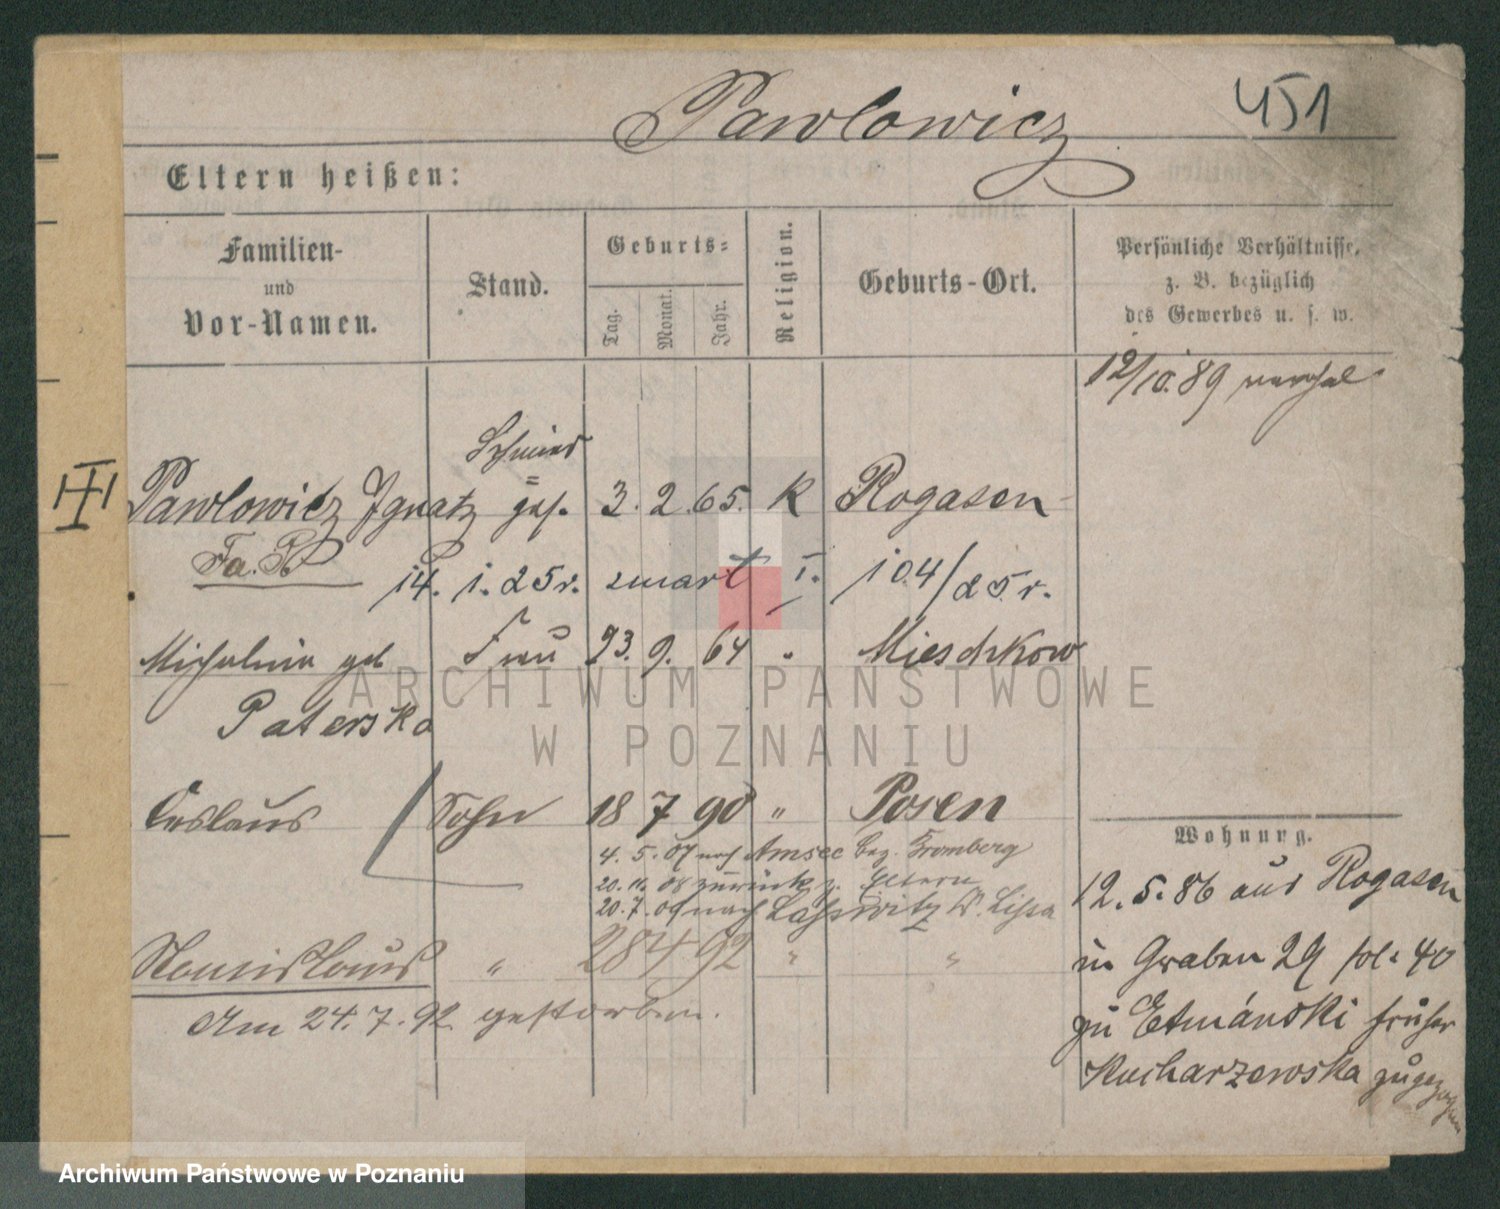 Pawlowicz
451
Eltern heißen:
Familien-
und
Vor-Namen.
Stand.
Geburts-
Tag.
Monat.
Jahr.
Religion.
Geburts-Ort.
Persönliche Verhältnisse,
z. B. bezüglich
des Gewerbes u. s. w.
12/10.89
Schmied
Pawlowicz Ignatz ges. 3. 2. 65. K Rogasen
Fa. P.
14. 1. 25 r. zmarł I. 104/25 r.
Michalina geb Frau 23. 9. 64 " Mieschkow
Paterska
Ceslaus Sohn 18 7 90 " Posen
4. 5. 07 nach Amsee Bez. Bromberg
20. 11. 08 zurück z. Eltern
20. 7. 09 nach Lasswitz W. Lissa
Stanislaus " 28 4 92 " "
Am 24. 7. 92 gestorben.
Wohnung.
12. 5. 86 aus Rogasen
in Graben 29 fol. 40
zu Etmánski früher
Kucharzewska zugezogen
ARCHIWUM PAŃSTWOWE
W POZNANIU
Archiwum Państwowe w Poznaniu